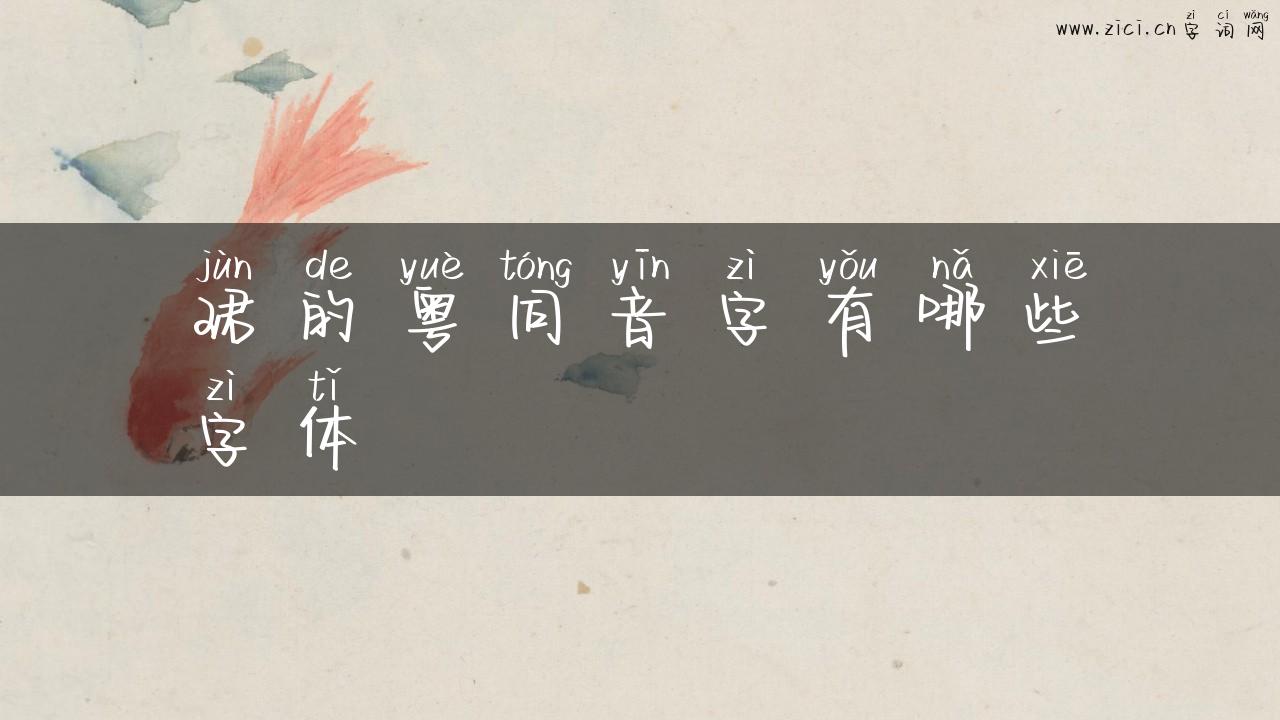 www.zici.cn zì cí wǎng
字词网
jùn de yuè tóng yīn zì yǒu nǎ xiē
珺的粤同音字有哪些
zì tǐ
字体